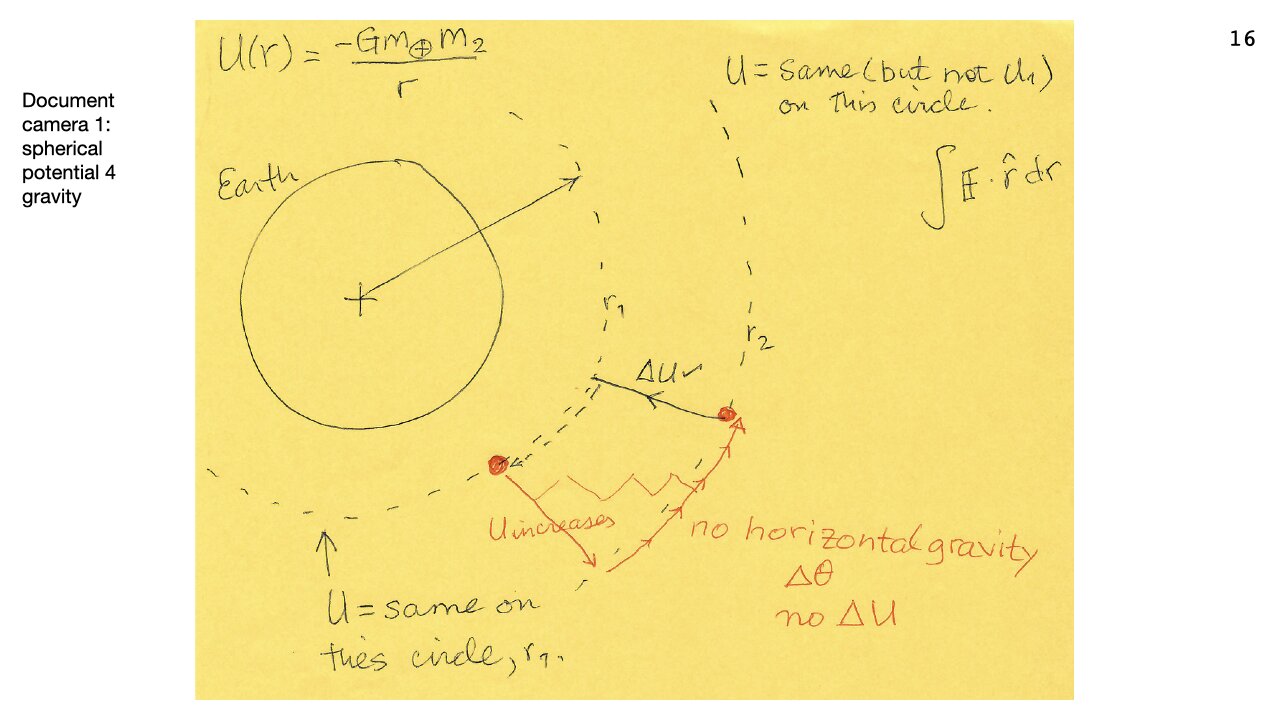 16
Document
camera 1:
spherical
potential 4
gravity
U(r) = -Gm⊕m₂ / r
U = same (but not U₁)
on this circle.
Earth
∫ E · r̂ dr
r₁
r₂
ΔU
U increases
no horizontal gravity
Δθ
no ΔU
U = same on
this circle, r₁.